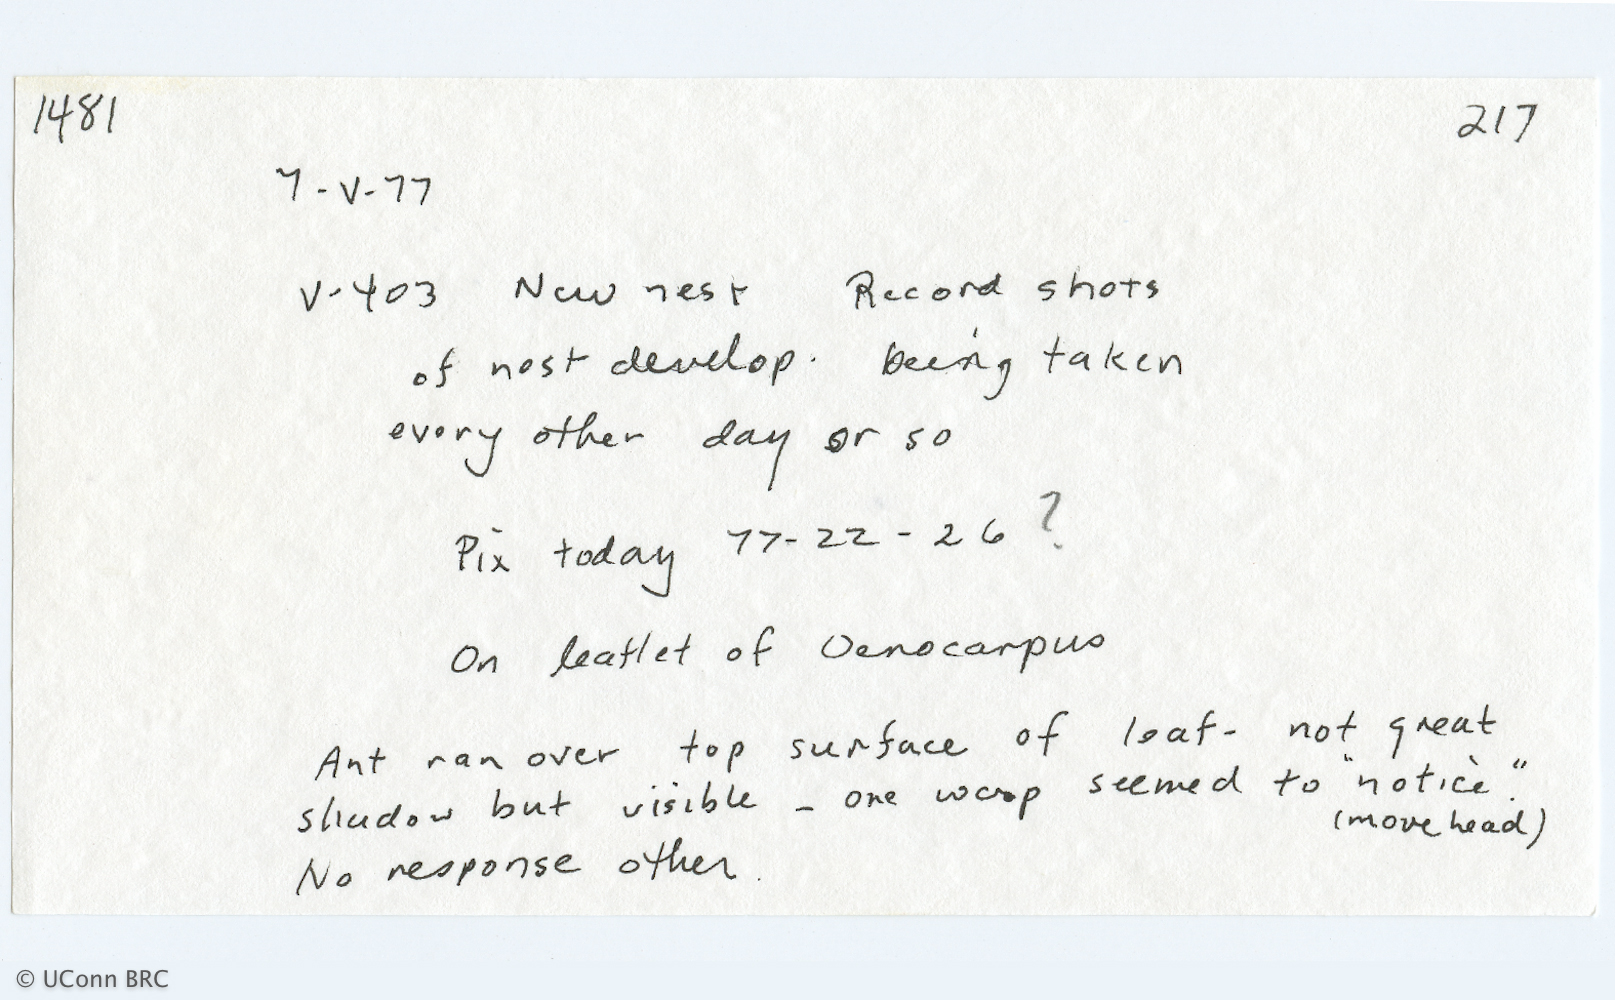 1481 217
7-V-77
V-403 New nest Record shots
of nest develop. being taken
every other day or so
Pix today 77-22-26 ?
On leaflet of Oenocarpus
Ant ran over top surface of leaf- not great
shadow but visible - one wasp seemed to "notice".
(move head)
No response other.
© UConn BRC